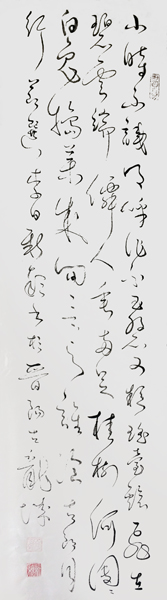 小時不識月呼作白玉盤又疑瑤臺鏡飛在
碧雲端僊人垂兩足桂樹何團團
白兔搗藥成問言与誰餐古朗月
行節選李白書於晉陽古龍潭